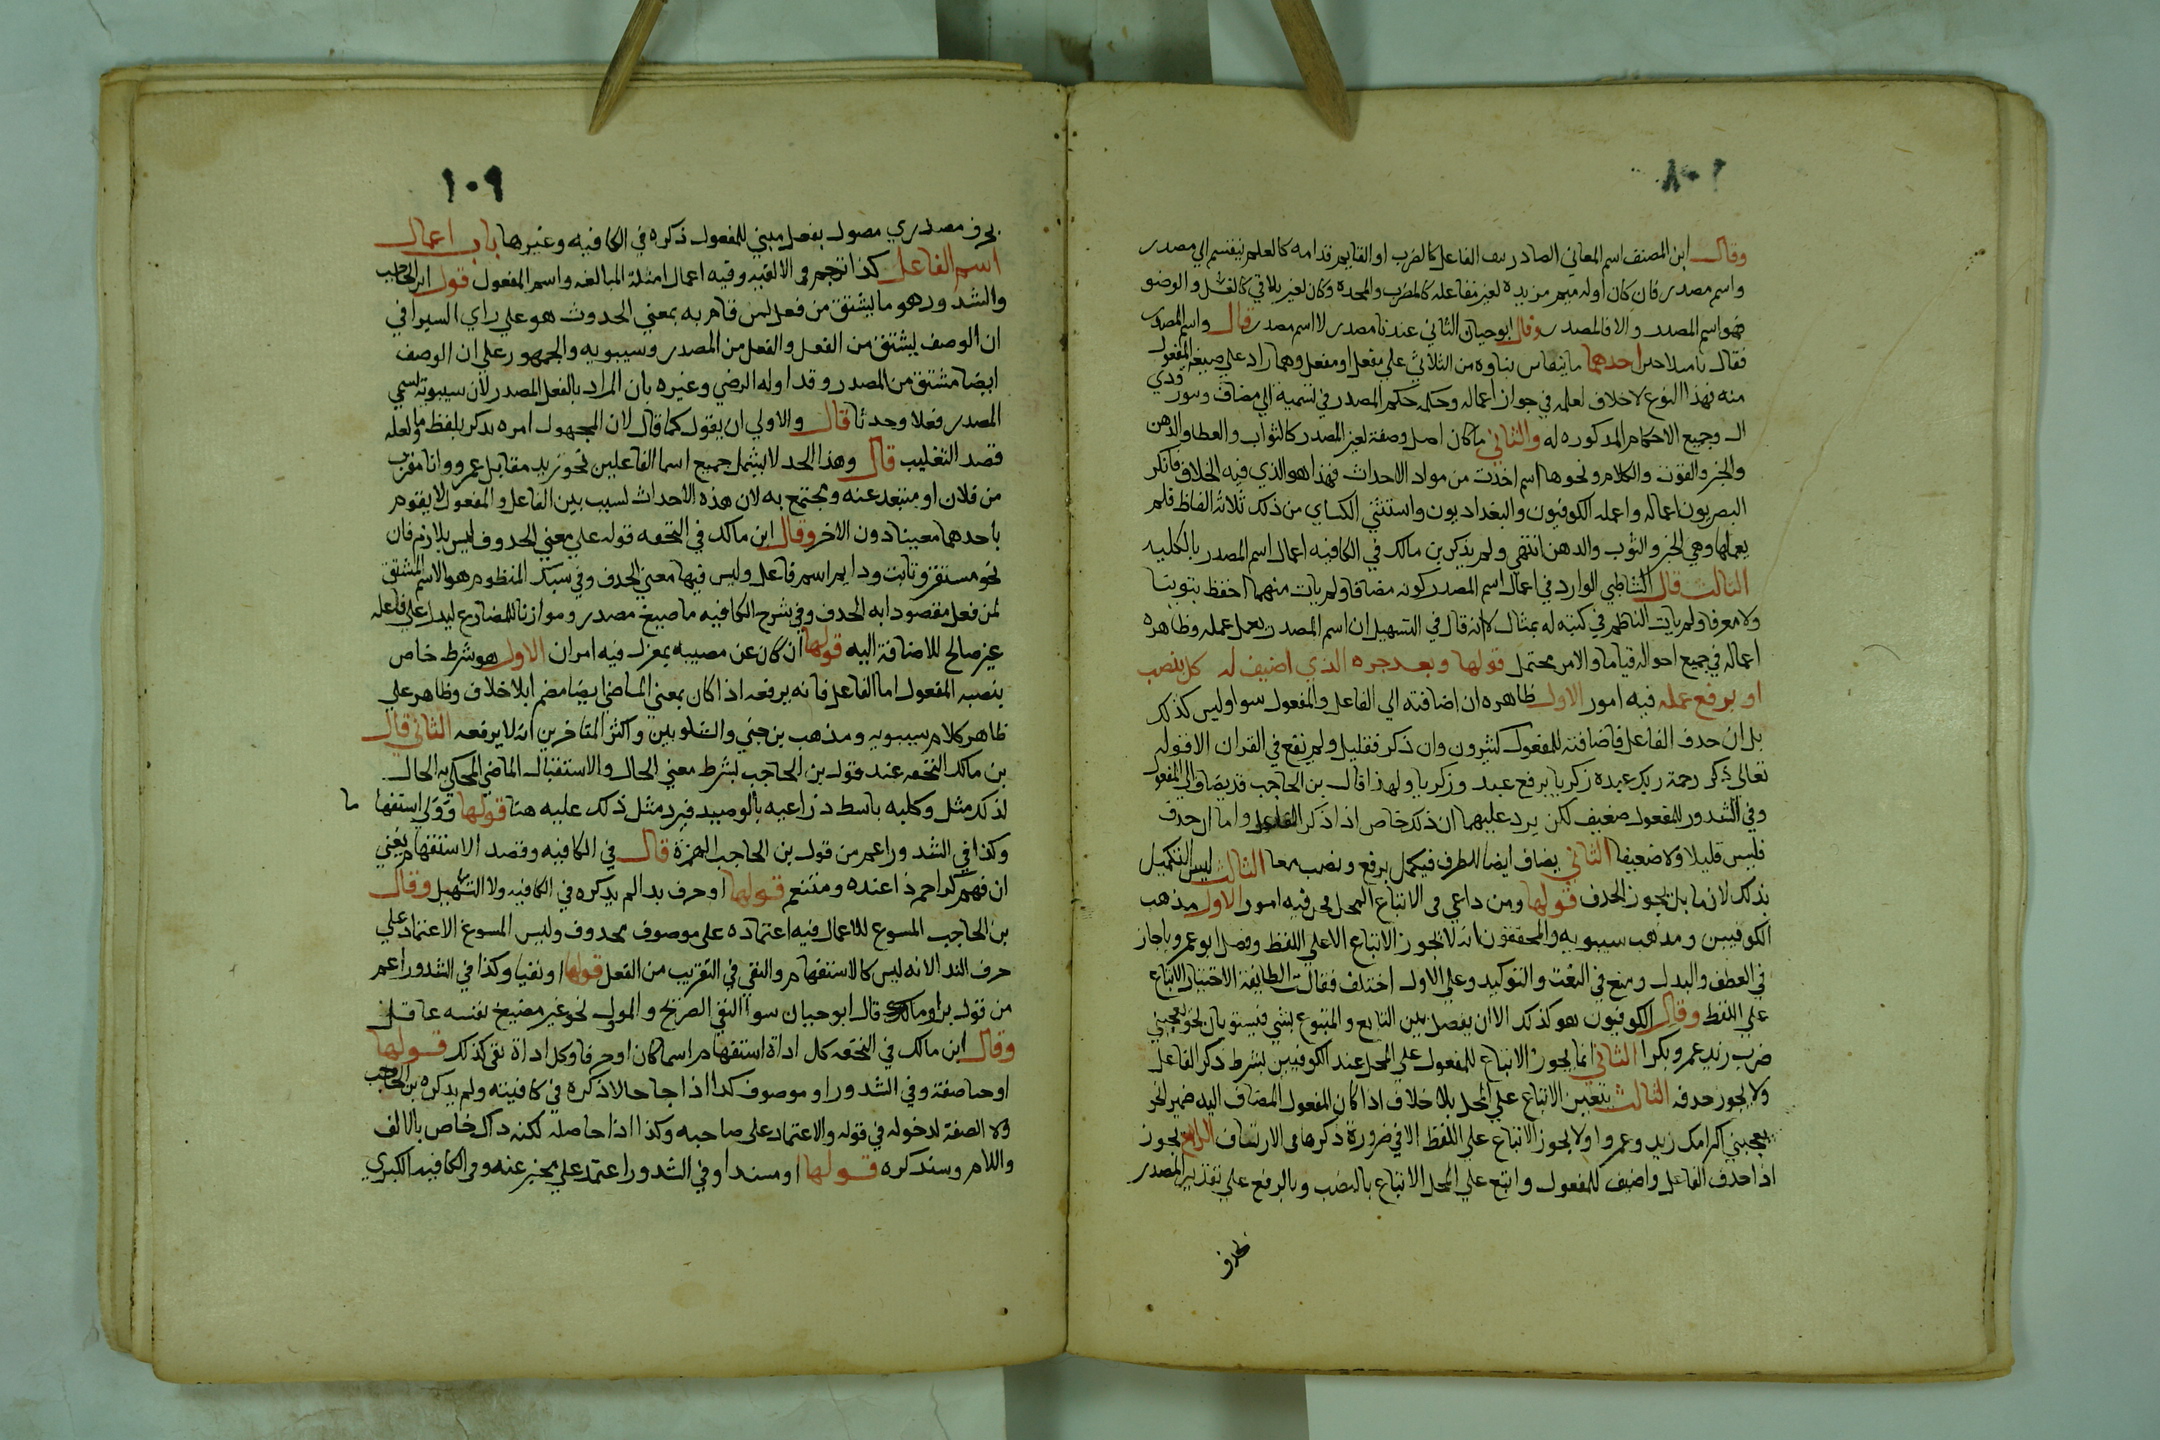 ١٠٨
وقال ابن المصنف اسم المعاني الصادر عن الفاعل كالضرب او القايم قدامه كالعلم ينقسم الي مصدر
واسم مصدر فان كان اوله ميم مزيده لغير مفاعله كالمضرب والمحمده وكان لغير ثلاثي كالغسل والوضو
فهو اسم المصدر والا فالمصدر وقال ابو حيان الثاني عندنا مصدر لا اسم مصدر قال واسم المصدر
فقال احدهما ما ينقاس بناوه من الثلاثي علي مفعل او مفعل وهما زاد علي صيغه المفعول
منه فهذا النوع لا خلاف لعلمه في جواز اعماله وحكمه حكم المصدر في تسميه الي مضاف ومنون وذي
ال وجميع الاحكام المذكوره له والثاني ما كان اصل وصفة لغير المصدر كالثواب والعطا والدهن
والخبز والقوت والكلام ونحوها اسم اخذت من مواد الاحداث فهذا هو الذي فيه الخلاف فانكر
البصريون اعماله واعمله الكوفيون والبغداديون واستثني الكساي من ذلك ثلاثة الفاظ فلم
يعملها وهي الخبز والثوب والدهن انتهي ولم يذكر بن مالك في الكافيه اعمال اسم المصدر بالكليه
الثالث قال الشاطبي الوارد في اعمال اسم المصدر كونه مضافا ولم يات منهما احفظ
ولا معرفا ولم يات الناظم في كتبه له بمثال لانه قال في التسهيل ان اسم المصدر يعمل عمله وظاهره
اعماله في جميع احواله قياما والامر محتمل قولها وبعد جره الذي اضيف له كمل بنصب
او برفع عمله فيه امور الاول ظاهره ان اضافته الي الفاعل والمفعول سوا وليس كذلك
بل ان حذف الفاعل فاضافته للمفعول كثيرون وان ذكر فقليل ولم تقع في القران الا قوله
تعالي ذكر رحمة ربك عبده زكريا برفع عبد وزكريا ولهذا قال بن الحاجب قد يضاف الي المفعول
وفي الشذور للمفعول ضعيف لكن يرد عليهما ان ذلك خاص اذا ذكر الفاعل واما ان حذف
فليس قليلا ولا ضعيفا الثاني يضاف ايضا للظرف فيكمل برفع ونصب معا الثالث ليس التكميل
بذلك لازما بل يجوز الحذف قولها ومن راعي في الاتباع المحل فحسن فيه امور الاول مذهب
الكوفيين ومذهب سيبويه والمحققون انه لا يجوز الاتباع الا علي اللفظ وفصل ابو عمرو فاجاز
في العطف والبدل ومنع في النعت والتوكيد وعلي الاول اختلف فقالت الطايفة الاختيار الاتباع
علي اللفظ وقال الكوفيون هو كذلك الا ان يفصل بين التابع والمتبوع بشي فيستويان نحو يعجبني
ضرب زيد عمرو بكرا الثاني انما يجوز الاتباع للمفعول علي المحل عند الكوفيين بشرط ذكر الفاعل
ولا يجوز حذفه الثالث يتعين الاتباع علي المحل بلا خلاف اذا كان المفعول المضاف اليه ضمير نحو
يعجبني اكرامك زيد وعمروا ولا يجوز الاتباع علي اللفظ الا في ضرورة ذكرها في الارتشاف الرابع يجوز
اذا حذف الفاعل واضيف للمفعول واتبع علي المحل الاتباع بالنصب وبالرفع علي تقدير المصدر
بحرف
١٠٩
بحرف مصدري موصول بفعل مبني للمفعول ذكره في الكافيه وغيرها باب اعمال
اسم الفاعل كذا ترجم في الالفيه وفيه اعمال امثلة المبالغه واسم المفعول قول ابن الحاجب
والشذور هو ما يشتق من فعل لمن قام به بمعني الحدوث هو علي راي السيرافي
ان الوصف يشتق من الفعل والفعل من المصدر وسيبويه والجمهور علي ان الوصف
ايضا مشتق من المصدر وقد اوله الرضي وغيره بان المراد بالفعل المصدر لان سيبويه سمي
المصدر فعلا وحدثا قال والاولي ان يقول كما قال لان المجهول امره يذكر بلفظ ما ولعله
قصد التغليب قال وهذا الحد لا يشمل جميع اسما الفاعلين نحو زيد مقابل عمرو وانا مقرب
من فلان او مبتعد عنه ومجتمع به لان هذه الاحداث لسبب بين الفاعل والمفعول لا يقوم
باحدهما معينا دون الاخر وقال ابن مالك في التحفه قوله علي معني الحدوث ليس بلازم فان
نحو مستقر وثابت ودايم اسم فاعل وليس فيها معني الحدف وفي سبك المنظوم هو الاسم المشتق
لمن فعل مقصودا به الحدف وفي شرح الكافيه ما صيغ مصدر وموازنا للمضارع ليدل علي فاعله
غير صالح للاضافة اليه قولها ان كان عن مضيه بمعزل فيه امران الاول هو شرط خاص
بنصبه المفعول اما الفاعل فانه يرفعه اذا كان بمعني الماضي ايضا مضمرا بلا خلاف وظاهر علي
ظاهر كلام سيبويه ومذهب بن جني والشلوبين واكثر المتاخرين انه لا يرفعه الثاني قال
بن مالك التحفه عند قول بن الحاجب بشرط معني الحال والاستقبال الماضي المحكي به الحال
لذلك مثل وكلبه باسط ذراعيه بالوصيد فيرد مثل ذلك عليه هنا قولها وولي استفهاما
وكذا في الشذور اعم من قول بن الحاجب الهمزة قال في الكافيه وقصد الاستفهام يغني
ان فهم كراحم ذا عنده وممتنع قولها او حرف ندا لم يذكره في الكافيه ولا التسهيل وقال
بن الحاجب المسوغ للاعمال فيه اعتماده علي موصوف محذوف وليس المسوغ الاعتماد علي
حرف الندا لانه ليس كالاستفهام والنفي في التقريب من الفعل قولها او نفيا وكذا في الشذور اعم
من قول بن او ما قال ابو حيان سوا النفي الصريح والمول نحو غير مضيع نفسه عاقل
وقال ابن مالك في التحفه كل اداة استفهام اسما كان او حرفا وكل اداة نفي كذلك قولها
او جا صفة وفي الشذور او موصوف كذا اذا جا حالا ذكره في كافيته ولم يذكره بن الحاجب
ولا الصفة لدخوله في قوله والاعتماد علي صاحبه وكذا اذا حا صله لكنه ذاك خاص بالالف
واللام وسنذكره قولها او مسندا وفي الشذور اعتمد علي مخبر عنه وفي الكافيه الكبري